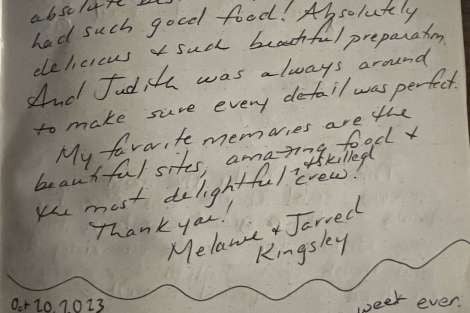 absolute
had such good food! Absolutely
delicious & such beautiful preparation.
And Judith was always around
to make sure every detail was perfect.
My favorite memories are the
beautiful sites, amazing food &
the most delightful & skilled crew!
Thank you!
Melanie & Jarred
Kingsley
Oct 20, 2023
week ever.